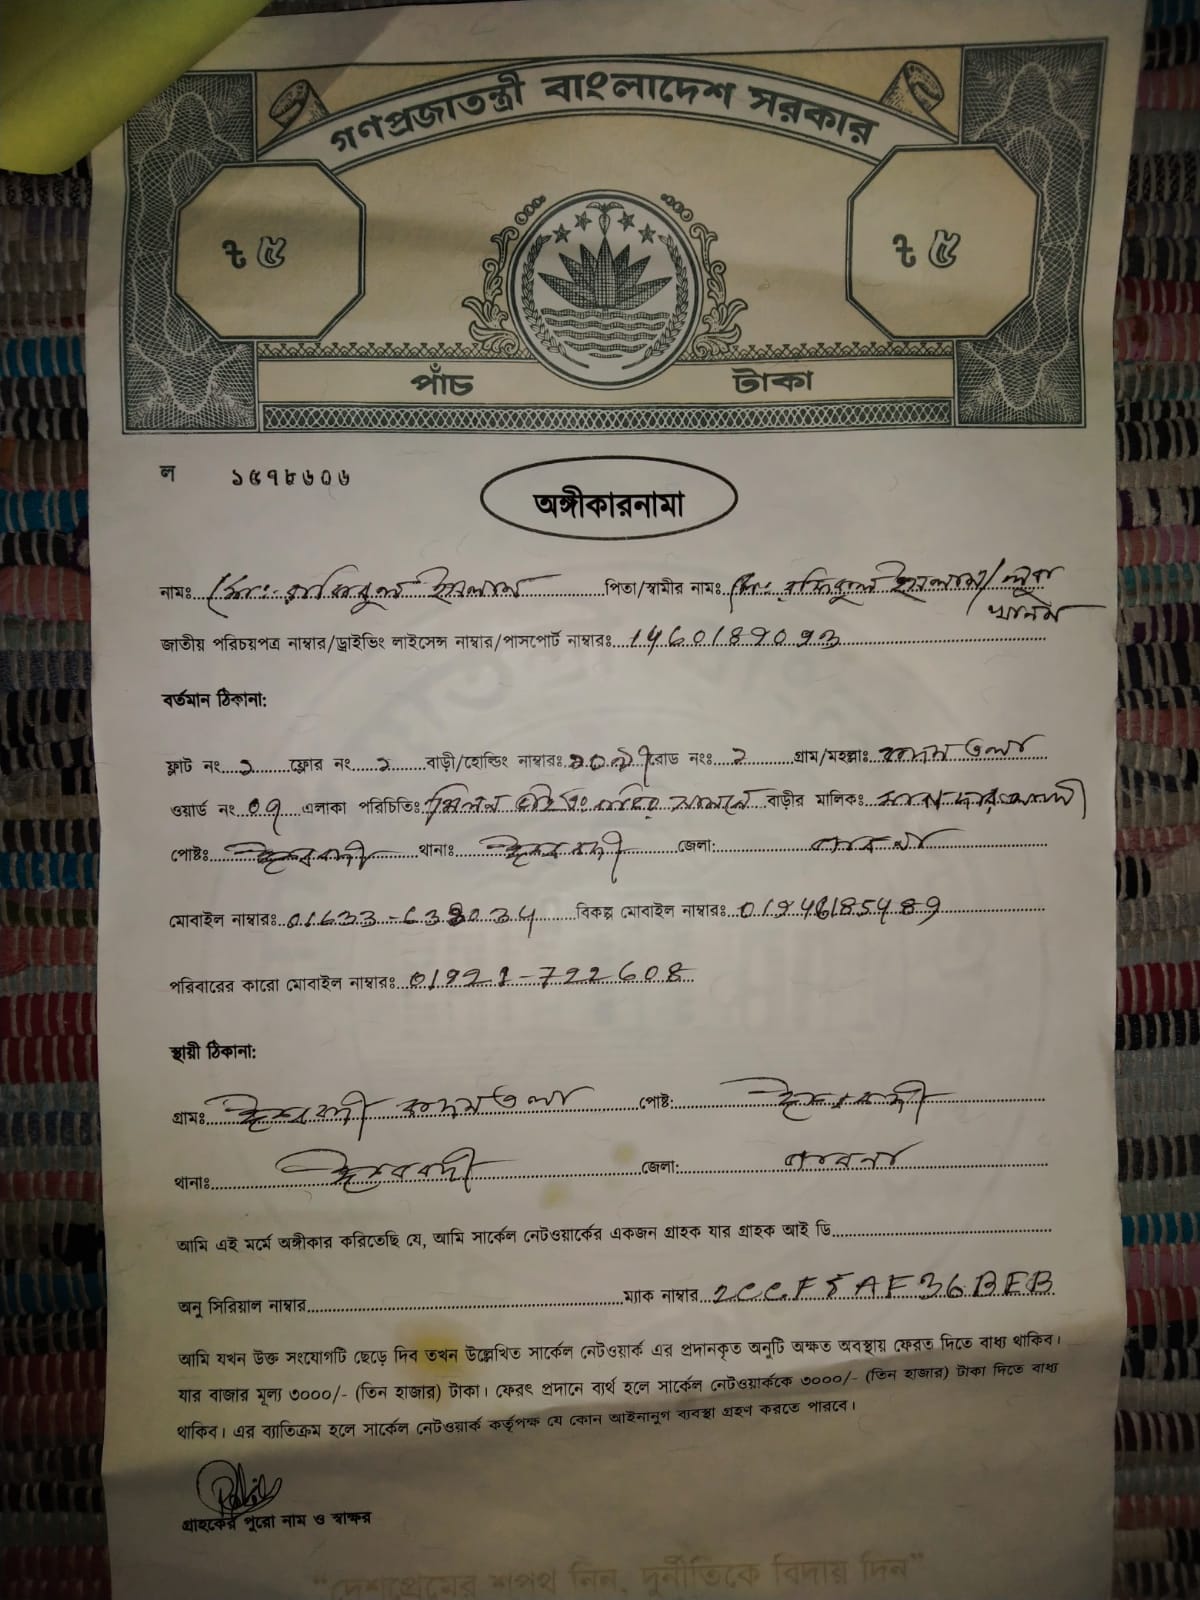 গণপ্রজাতন্ত্রী বাংলাদেশ সরকার
৳ ৫ ৳ ৫
পাঁচ টাকা
ল ১৫৭৮৬০৬
অঙ্গীকারনামা
নামঃ মোঃ রাকিবুল ইসলাম পিতা/স্বামীর নামঃ মোঃ রফিকুল ইসলাম/লুবা
খানম
জাতীয় পরিচয়পত্র নাম্বার/ড্রাইভিং লাইসেন্স নাম্বার/পাসপোর্ট নাম্বারঃ 1460189093
বর্তমান ঠিকানা:
ফ্লাট নং ২ ফ্লোর নং ২ বাড়ী/হোল্ডিং নাম্বারঃ রোড নংঃ ২ গ্রাম/মহল্লাঃ কদমতলা
ওয়ার্ড নং 09 এলাকা পরিচিতিঃ বাড়ীর মালিকঃ
পোষ্টঃ ঈশ্বরদী থানাঃ ঈশ্বরদী জেলা: পাবনা
মোবাইল নাম্বারঃ 01633-6 বিকল্প মোবাইল নাম্বারঃ
পরিবারের কারো মোবাইল নাম্বারঃ 01921-722608
স্থায়ী ঠিকানা:
গ্রামঃ ঈশ্বরদী কদমতলা পোষ্ট: ঈশ্বরদী
থানাঃ ঈশ্বরদী জেলা: পাবনা
আমি এই মর্মে অঙ্গীকার করিতেছি যে, আমি সার্কেল নেটওয়ার্কের একজন গ্রাহক যার গ্রাহক আই ডি
অনু সিরিয়াল নাম্বার ম্যাক নাম্বার 2CCF5AF36BEB
আমি যখন উক্ত সংযোগটি ছেড়ে দিব তখন উল্লেখিত সার্কেল নেটওয়ার্ক এর প্রদানকৃত অনুটি অক্ষত অবস্থায় ফেরত দিতে বাধ্য থাকিব।
যার বাজার মূল্য ৩০০০/- (তিন হাজার) টাকা। ফেরৎ প্রদানে ব্যর্থ হলে সার্কেল নেটওয়ার্ককে ৩০০০/- (তিন হাজার) টাকা দিতে বাধ্য
থাকিব। এর ব্যাতিক্রম হলে সার্কেল নেটওয়ার্ক কর্তৃপক্ষ যে কোন আইনানুগ ব্যবস্থা গ্রহণ করতে পারবে।
গ্রাহকের পুরো নাম ও স্বাক্ষর
“দেশপ্রেমের শপথ নিন, দুর্নীতিকে বিদায় দিন”